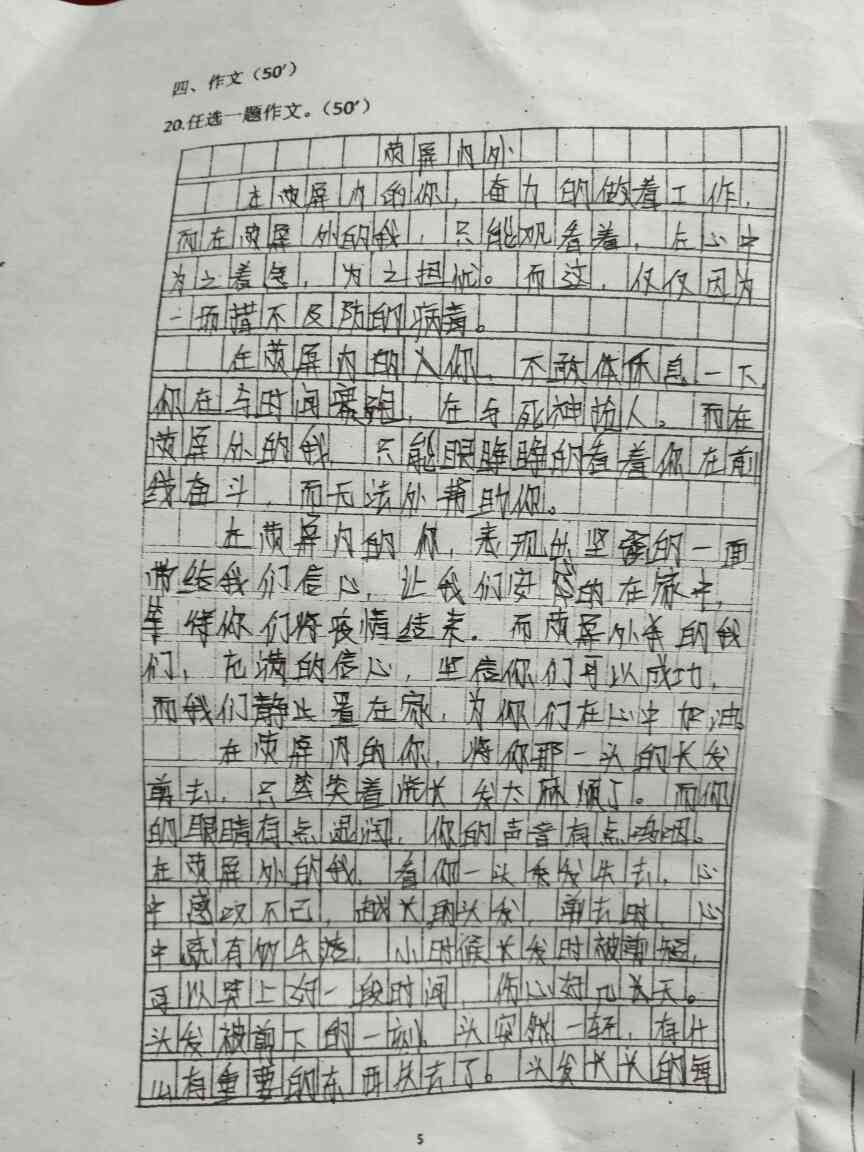 四、作文（50′）
20.任选一题作文。（50′）
荧屏内外
在荧屏内的你，奋力的做着工作，
而在荧屏外的我，只能观看着，在心中
为之着急，为之担忧。而这，仅仅因为
一场措不及防的病毒。
在荧屏内的你，不敢休息一下，
你在与时间赛跑，在与死神抢人。而在
荧屏外的我，只能眼睁睁的看着你在前
线奋斗，而无法帮助你。
在荧屏内的你，表现出坚强的一面
带给我们信心，让我们安心的在家中，
等待你们将疫情结束。而荧屏外的我
们，充满的信心，坚信你们可以成功，
而我们静在家，为你们在心中加油。
在荧屏内的你，将你那一头的长发
剪去，只笑着说长发太麻烦了。而你
的眼睛有点湿润，你的声音有点
在荧屏外的我，看你一头秀发失去，心
中感不已，越长的头发，剪去时，心
中就有失落，小时候长发时被剪短，
可以哭上好一段时间，伤心好几天。
头发被剪下的一刻，头突然一轻，有什
么重要的东西失去了。头发长长的每
5